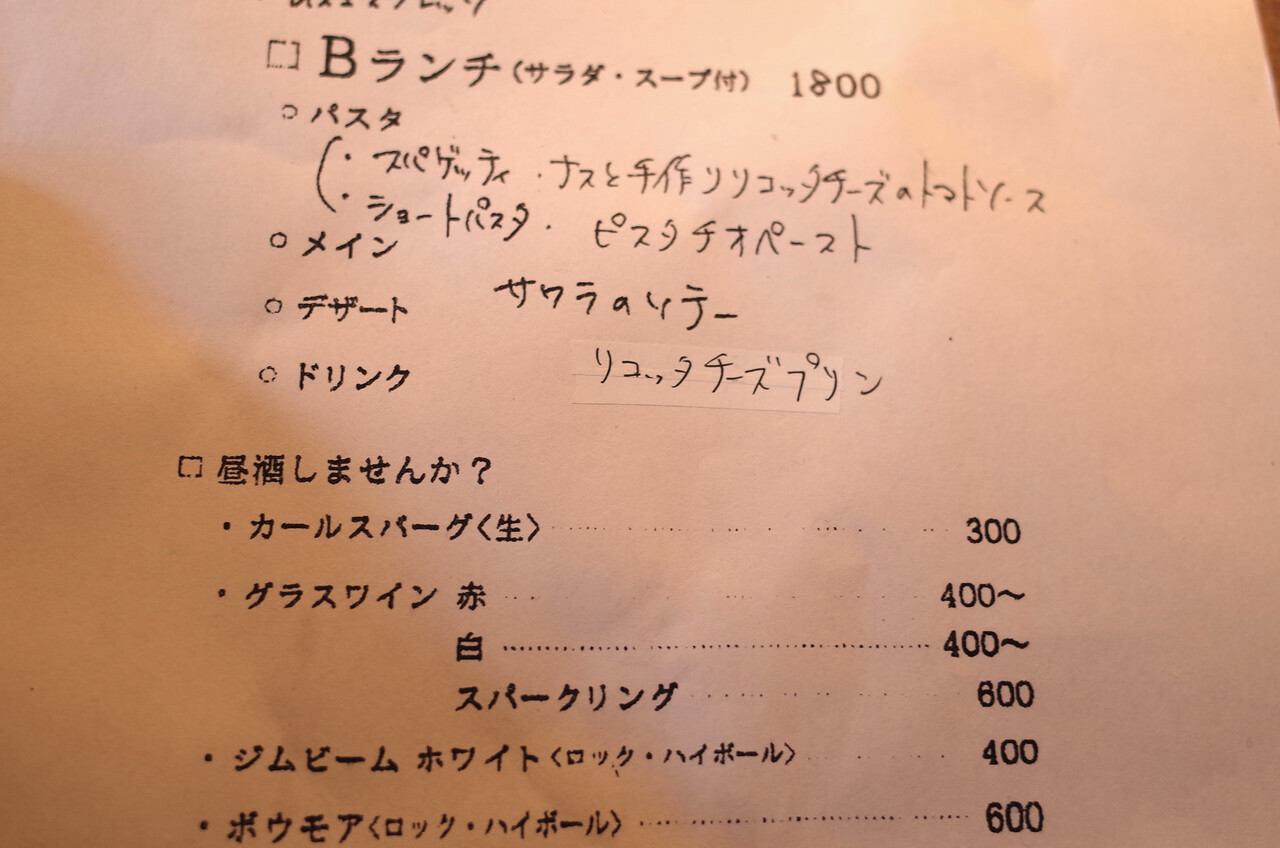 □ Bランチ(サラダ・スープ付) 1800
○ パスタ
・スパゲッティ ・ナスと手作りリコッタチーズのトマトソース
・ショートパスタ・ ピスタチオペースト
○ メイン
サワラのソテー
○ デザート
リコッタチーズプリン
○ ドリンク
□ 昼酒しませんか?
・カールスバーグ〈生〉 300
・グラスワイン 赤 400〜
白 400〜
スパークリング 600
・ジムビーム ホワイト〈ロック・ハイボール〉 400
・ボウモア〈ロック・ハイボール〉 600